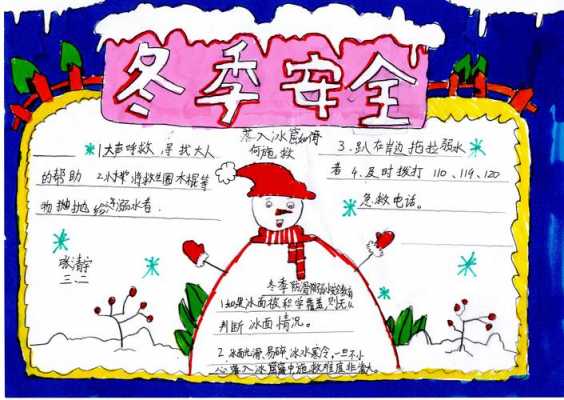 冬季安全
落入冰窟如何施救
1.大声呼救,寻找大人
的帮助 2.将救生圈木棍等
物抛给溺水者.
3.趴在岸边拖拉溺水
者 4.及时拨打 110、119、120
急救电话。
张清宇
三.二
冬季防溺
1.如是冰面被积雪覆盖,则无从
判断冰面情况。
2.冰面光滑、易碎、冰水寒冷,一旦不小
心落入冰窟窿中施救难度非常大.